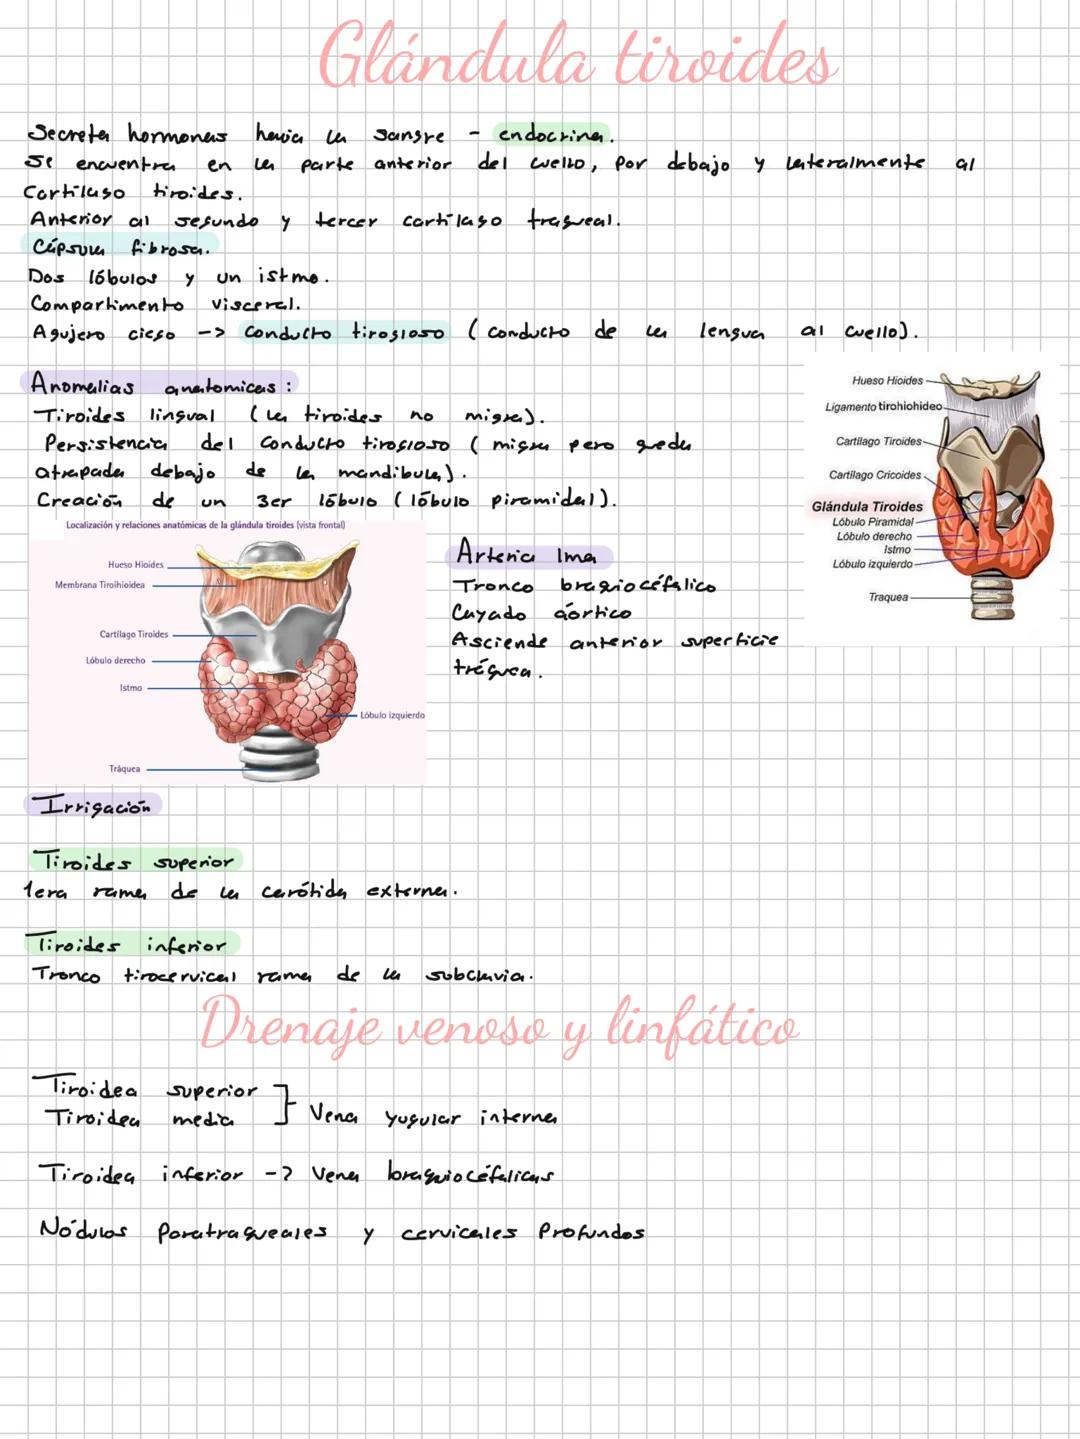 Glándula tiroides
Secreta hormonas hacia la sangre - endocrina.
Se encuentra en la parte anterior del cuello, por debajo y lateralmente al
Cartílago tiroides.
Anterior al segundo y tercer cartílago traqueal.
Cápsula fibrosa.
Dos lóbulos y un istmo.
Compartimento visceral.
Agujero ciego -> Conducto tirogloso (conducto de la lengua al cuello).
Anomalias anatomicas:
Tiroides lingual (la tiroides no migra).
Persistencia del Conducto tirogloso (migra pero queda
atrapada debajo de la mandibula).
Creación de un 3er lóbulo (lóbulo piramidal).
Hueso Hioides
Ligamento tirohiohideo
Cartílago Tiroides
Cartílago Cricoides
Glándula Tiroides
Lóbulo Piramidal
Lóbulo derecho
Istmo
Lóbulo izquierdo
Traquea
Localización y relaciones anatómicas de la glándula tiroides (vista frontal)
Hueso Hioides
Membrana Tiroihioidea
Cartílago Tiroides
Lóbulo derecho
Istmo
Lóbulo izquierdo
Tráquea
Arteria Ima
Tronco braquiocéfalico
Cayado áortico
Asciende anterior superficie
tráquea.
Irrigación
Tiroides superior
1era rama de la carótida externa.
Tiroides inferior
Tronco tirocervical rama de la subclavia.
Drenaje venoso y linfático
Tiroidea superior
Tiroidea media } Vena yugular interna
Tiroidea inferior -> Vena braquiocéfalicas
Nódulos Paratraqueales y cervicales Profundos